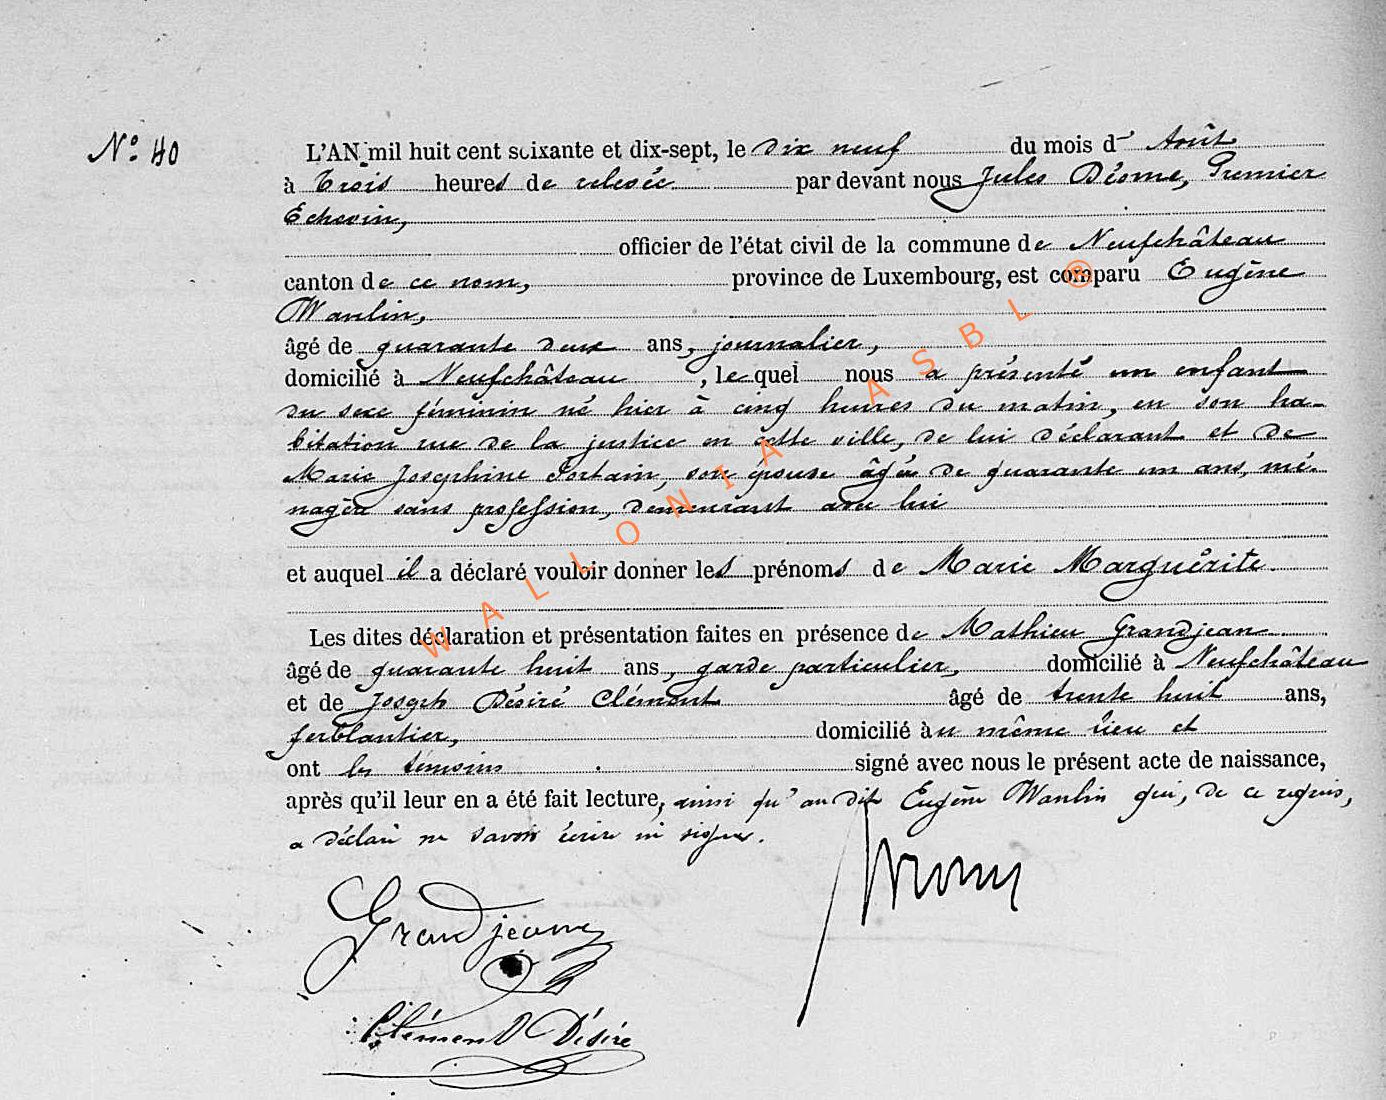 N° 40
L'AN mil huit cent soixante et dix-sept, le dix neuf du mois d' Août
à Trois heures de relevée par devant nous Jules Déome, Premier
Echevin,
officier de l'état civil de la commune de Neufchâteau
canton de ce nom, province de Luxembourg, est comparu Eugène
Wanlin,
âgé de quarante deux ans, journalier,
domicilié à Neufchâteau, lequel nous a présenté un enfant
du sexe féminin né hier à cinq heures du matin, en son ha-
bitation rue de la justice en cette ville, de lui déclarant et de
Marie Josephine Fortain, son épouse âgée de quarante un ans, mé-
nagère sans profession, demeurant avec lui
et auquel il a déclaré vouloir donner les prénoms de Marie Marguérite
Les dites déclaration et présentation faites en présence de Mathieu Grandjean
âgé de quarante huit ans, garde particulier, domicilié à Neufchâteau
et de Joseph Désiré Clément âgé de trente huit ans,
ferblantier, domicilié au même lieu et
ont les témoins signé avec nous le présent acte de naissance,
après qu'il leur en a été fait lecture, ainsi qu'au dit Eugène Wanlin qui, de ce requis,
a déclaré ne savoir écrire ni signer.
Grandjean
Clément Désiré
WALLONIA ASBL ®